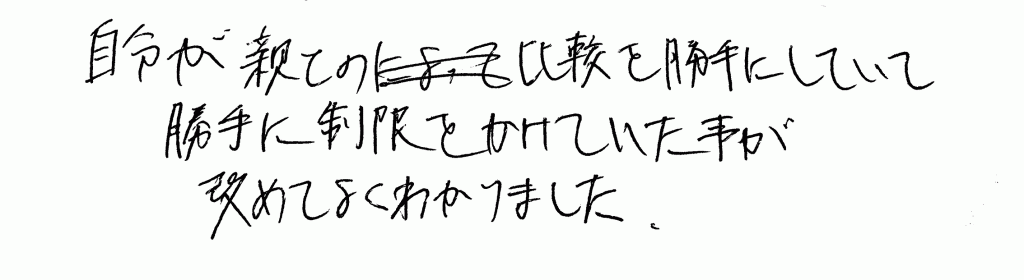 自分が親との比較を勝手にしていて
勝手に制限をかけていた事が
改めてよくわかりました.